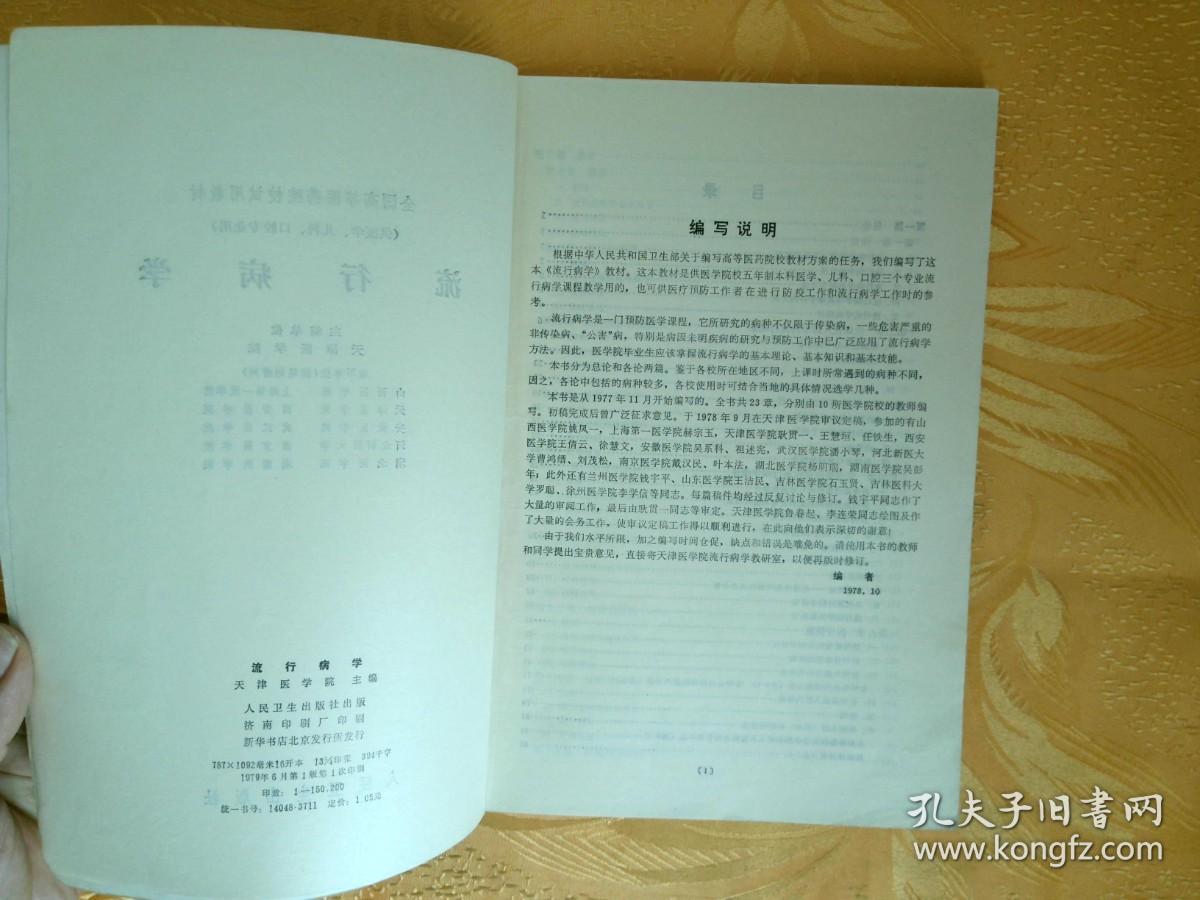 流行病学
天津医学院 主编
人民卫生出版社出版
济南印刷厂印刷
新华书店北京发行所发行
787×1092毫米16开本 13¾印张 394千字
1979年6月第1版第1次印刷
印数：1—150,200
统一书号：14048·3711 定价：1.05元
编写说明
根据中华人民共和国卫生部关于编写高等医药院校教材方案的任务，我们编写了这
本《流行病学》教材。这本教材是供医学院校五年制本科医学、儿科、口腔三个专业流
行病学课程教学用的，也可供医疗预防工作者在进行防疫工作和流行病学工作时的参
考。
流行病学是一门预防医学课程，它所研究的病种不仅限于传染病，一些危害严重的
非传染病、“公害”病，特别是病因未明疾病的研究与预防工作中已广泛应用了流行病学
方法。因此，医学院毕业生应该掌握流行病学的基本理论、基本知识和基本技能。
本书分为总论和各论两篇。鉴于各校所在地区不同，上课时所常遇到的病种不同，
因之，各论中包括的病种较多，各校使用时可结合当地的具体情况选学几种。
本书是从1977年11月开始编写的。全书共23章，分别由10所医学院校的教师编
写。初稿完成后曾广泛征求意见。于1978年9月在天津医学院审议定稿，参加的有山
西医学院姚凤一，上海第一医学院赫宗玉，天津医学院耿贯一、王慧垣、任铁生，西安
医学院王倩云、徐慧文，安徽医学院吴系科、祖述宪，武汉医学院潘小琴，河北新医大
学曹鸿缙、刘茂松，南京医学院戴汉民、叶本法，湖北医学院杨明瑞，湖南医学院吴彭
年；此外还有兰州医学院钱宇平、山东医学院王洁民、吉林医学院石玉贤、吉林医科大
学罗聪、徐州医学院李学信等同志。每篇稿件均经过反复讨论与修订。钱宇平同志作了
大量的审阅工作，最后由耿贯一同志等审定。天津医学院鲁春起、李连荣同志绘图及作
了大量的会务工作，使审议定稿工作得以顺利进行，在此向他们表示深切的谢意！
由于我们水平所限，加之编写时间仓促，缺点和错误是难免的。请使用本书的教师
和同学提出宝贵意见，直接寄天津医学院流行病学教研室，以便再版时修订。
编 者
1978.10
（1）
孔夫子旧书网
www.kongfz.com